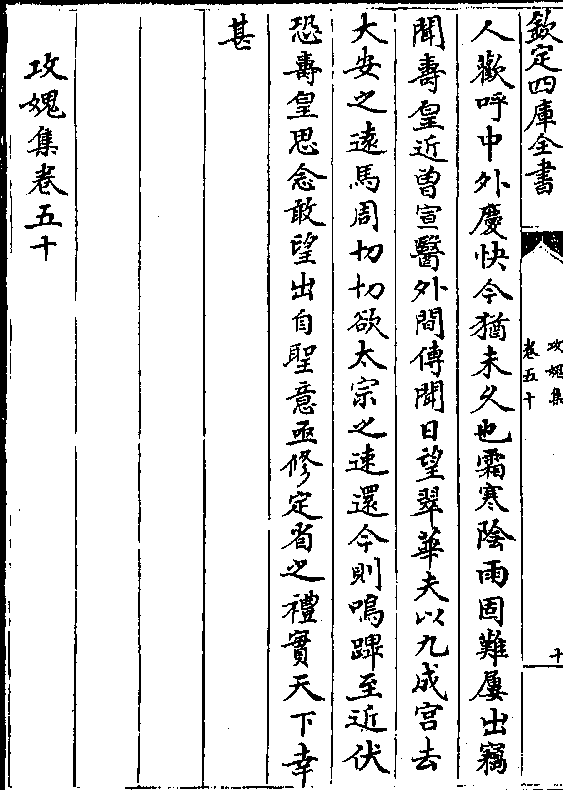 欽定四庫全書
攻媿集
卷五十
十
人歡呼中外慶快今猶未久也霜寒陰雨固難屢出竊
聞壽皇近曾宣醫外間傳聞日望翠華夫以九成宮去
大安之遠馬周切切欲太宗之速還今則鳴蹕至近伏
恐壽皇思念敢望出自聖意亟修定省之禮實天下幸
甚
攻媿集卷五十